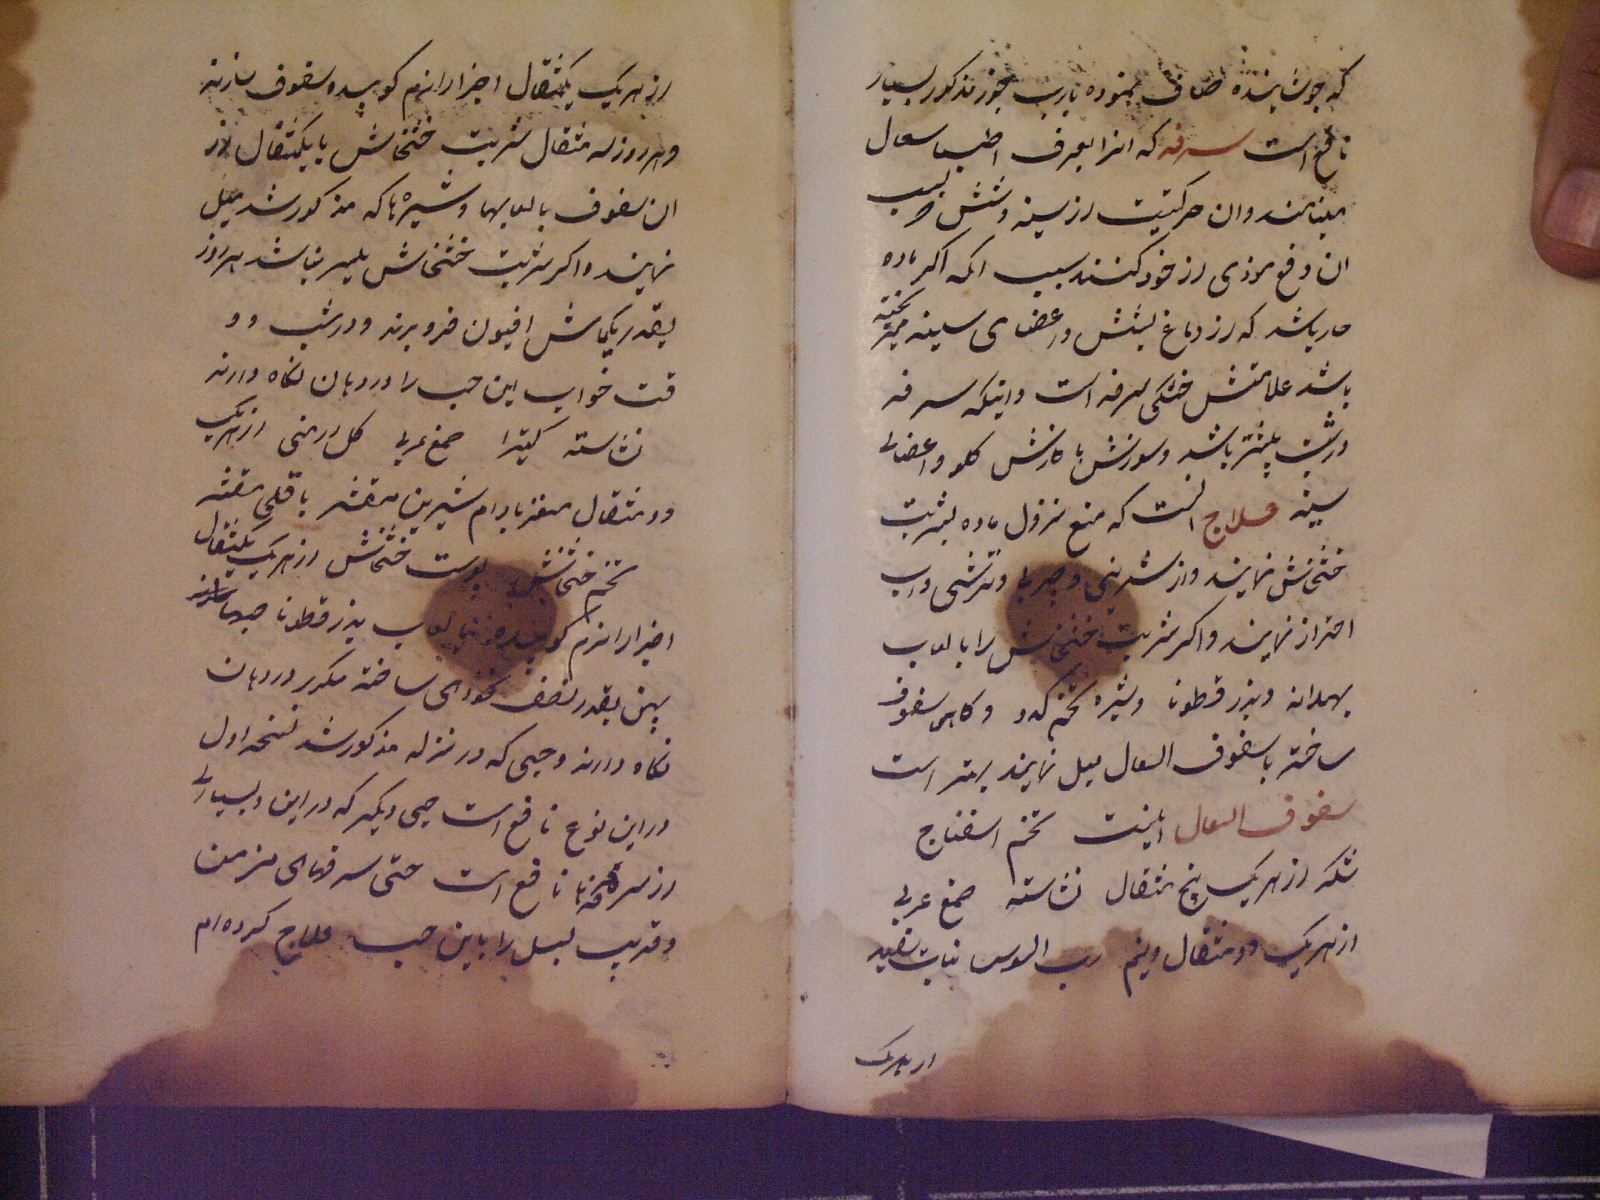 که جوشانیده صاف نموده بارب جوز مذکور بسیار
نافع است سرفه که انرا بعرف اطبا سعال
مینامند و ان حرکتیست از سینه و شش بسبب
ان دفع موذی از خود کنند سبب انکه اکر ماده
حار باشد که از دماغ بشش و اعضای سینه میریخته
باشد علامتش خشکی سرفه است و اینکه سرفه
در شب بیشتر باشد و سوزش با خارش کلو و اعضای
سینه علاج انست که منع نزول ماده بشربت
خشخاش نمایند و از شیرینی و چربی و ترشی و اب
احتراز نمایند و اکر شربت خشخاش را با لعاب
بهدانه و بذر قطونا و شیره تخم کدو و کاهی سفوف
ساخته با سفوف السعال میل نمایند بهتر است
سفوف السعال اینست تخم اسفناج
از هریک پنج مثقال نشاسته صمغ عربی
از هریک دو مثقال و نیم رب السوس نبات سفید
از هریک
از هریک یکمثقال اجزا را نرم کوبیده سفوف سازند
و هر روز سه مثقال شربت خشخاش با یکمثقال از
ان سفوف با لعابها و شیره ها که مذکور شد میل
نمایند و اکر شربت خشخاش میسر نباشد هر روز
بقدر یکماش افیون فرو برند و در شب و و
قت خواب این حب را در دهان نکاه دارند
نشاسته کتیرا صمغ عربی کل ارمنی از هریک
دو مثقال مغز بادام شیرین مقشر باقلی مقشر
تخم خشخاش پوست خشخاش از هریک یکمثقال
اجزا را نرم کوبیده لعاب بذر قطونا حبها سازند
پهن بقدر نصف نخودی ساخته مکرر در دهان
نکاه دارند و حبی که در نزله مذکور شد نسخه اول
در این نوع نافع است حبی دیکر که در این و بسیاری
از سرفه ها نافع است حتی سرفهای مزمن
و قریب بسل را باین حب علاج کرده ام